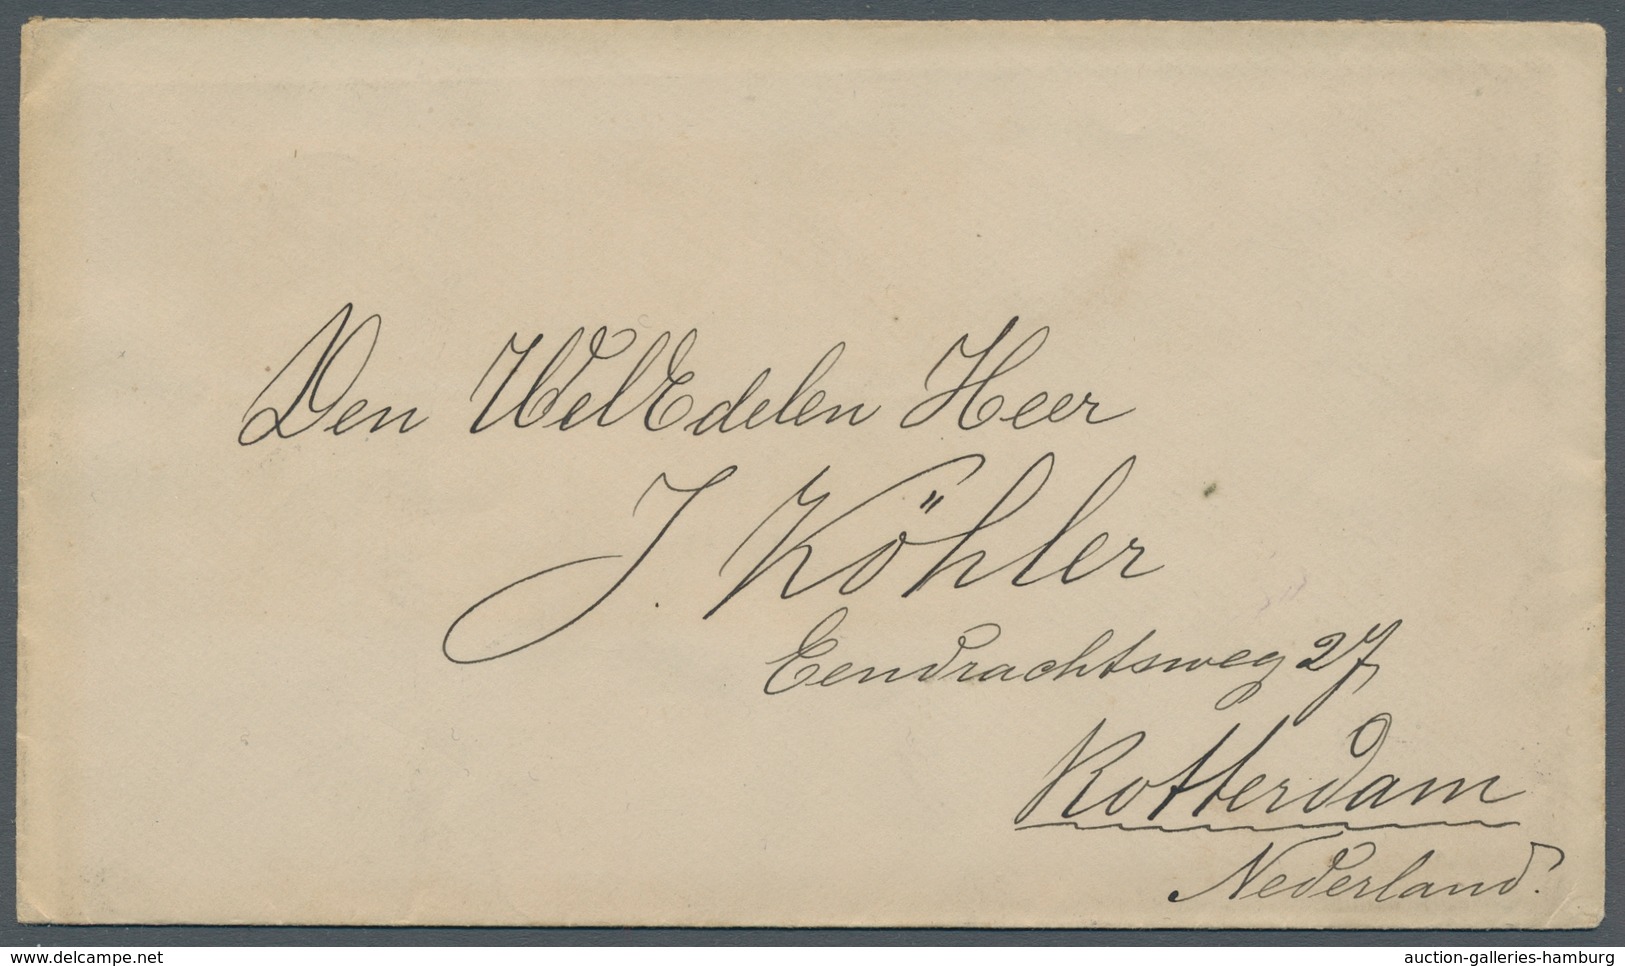 Den WelEdelen Heer
J. Köhler
Eendrachtsweg 27
Rotterdam
Nederland.
www.delcampe.net
auction-galleries-hamburg